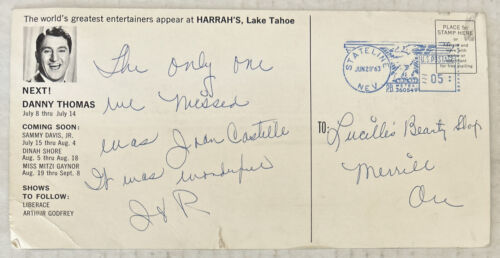 The world's greatest entertainers appear at HARRAH'S, Lake Tahoe
NEXT!
DANNY THOMAS
July 8 thru July 14
COMING SOON:
SAMMY DAVIS, JR.
July 15 thru Aug. 4
DINAH SHORE
Aug. 5 thru Aug. 18
MISS MITZI GAYNOR
Aug. 19 thru Sept. 8
SHOWS
TO FOLLOW:
LIBERACE
ARTHUR GODFREY
The only one
we missed
was Joan Castelle
It was wonderful
J & R
STATELINE
JUN 21 '63
NEV.
U.S. POSTAGE
05
PLACE
STAMP HERE
TO:
Lucille's Beauty Shop
Merrill
Ore